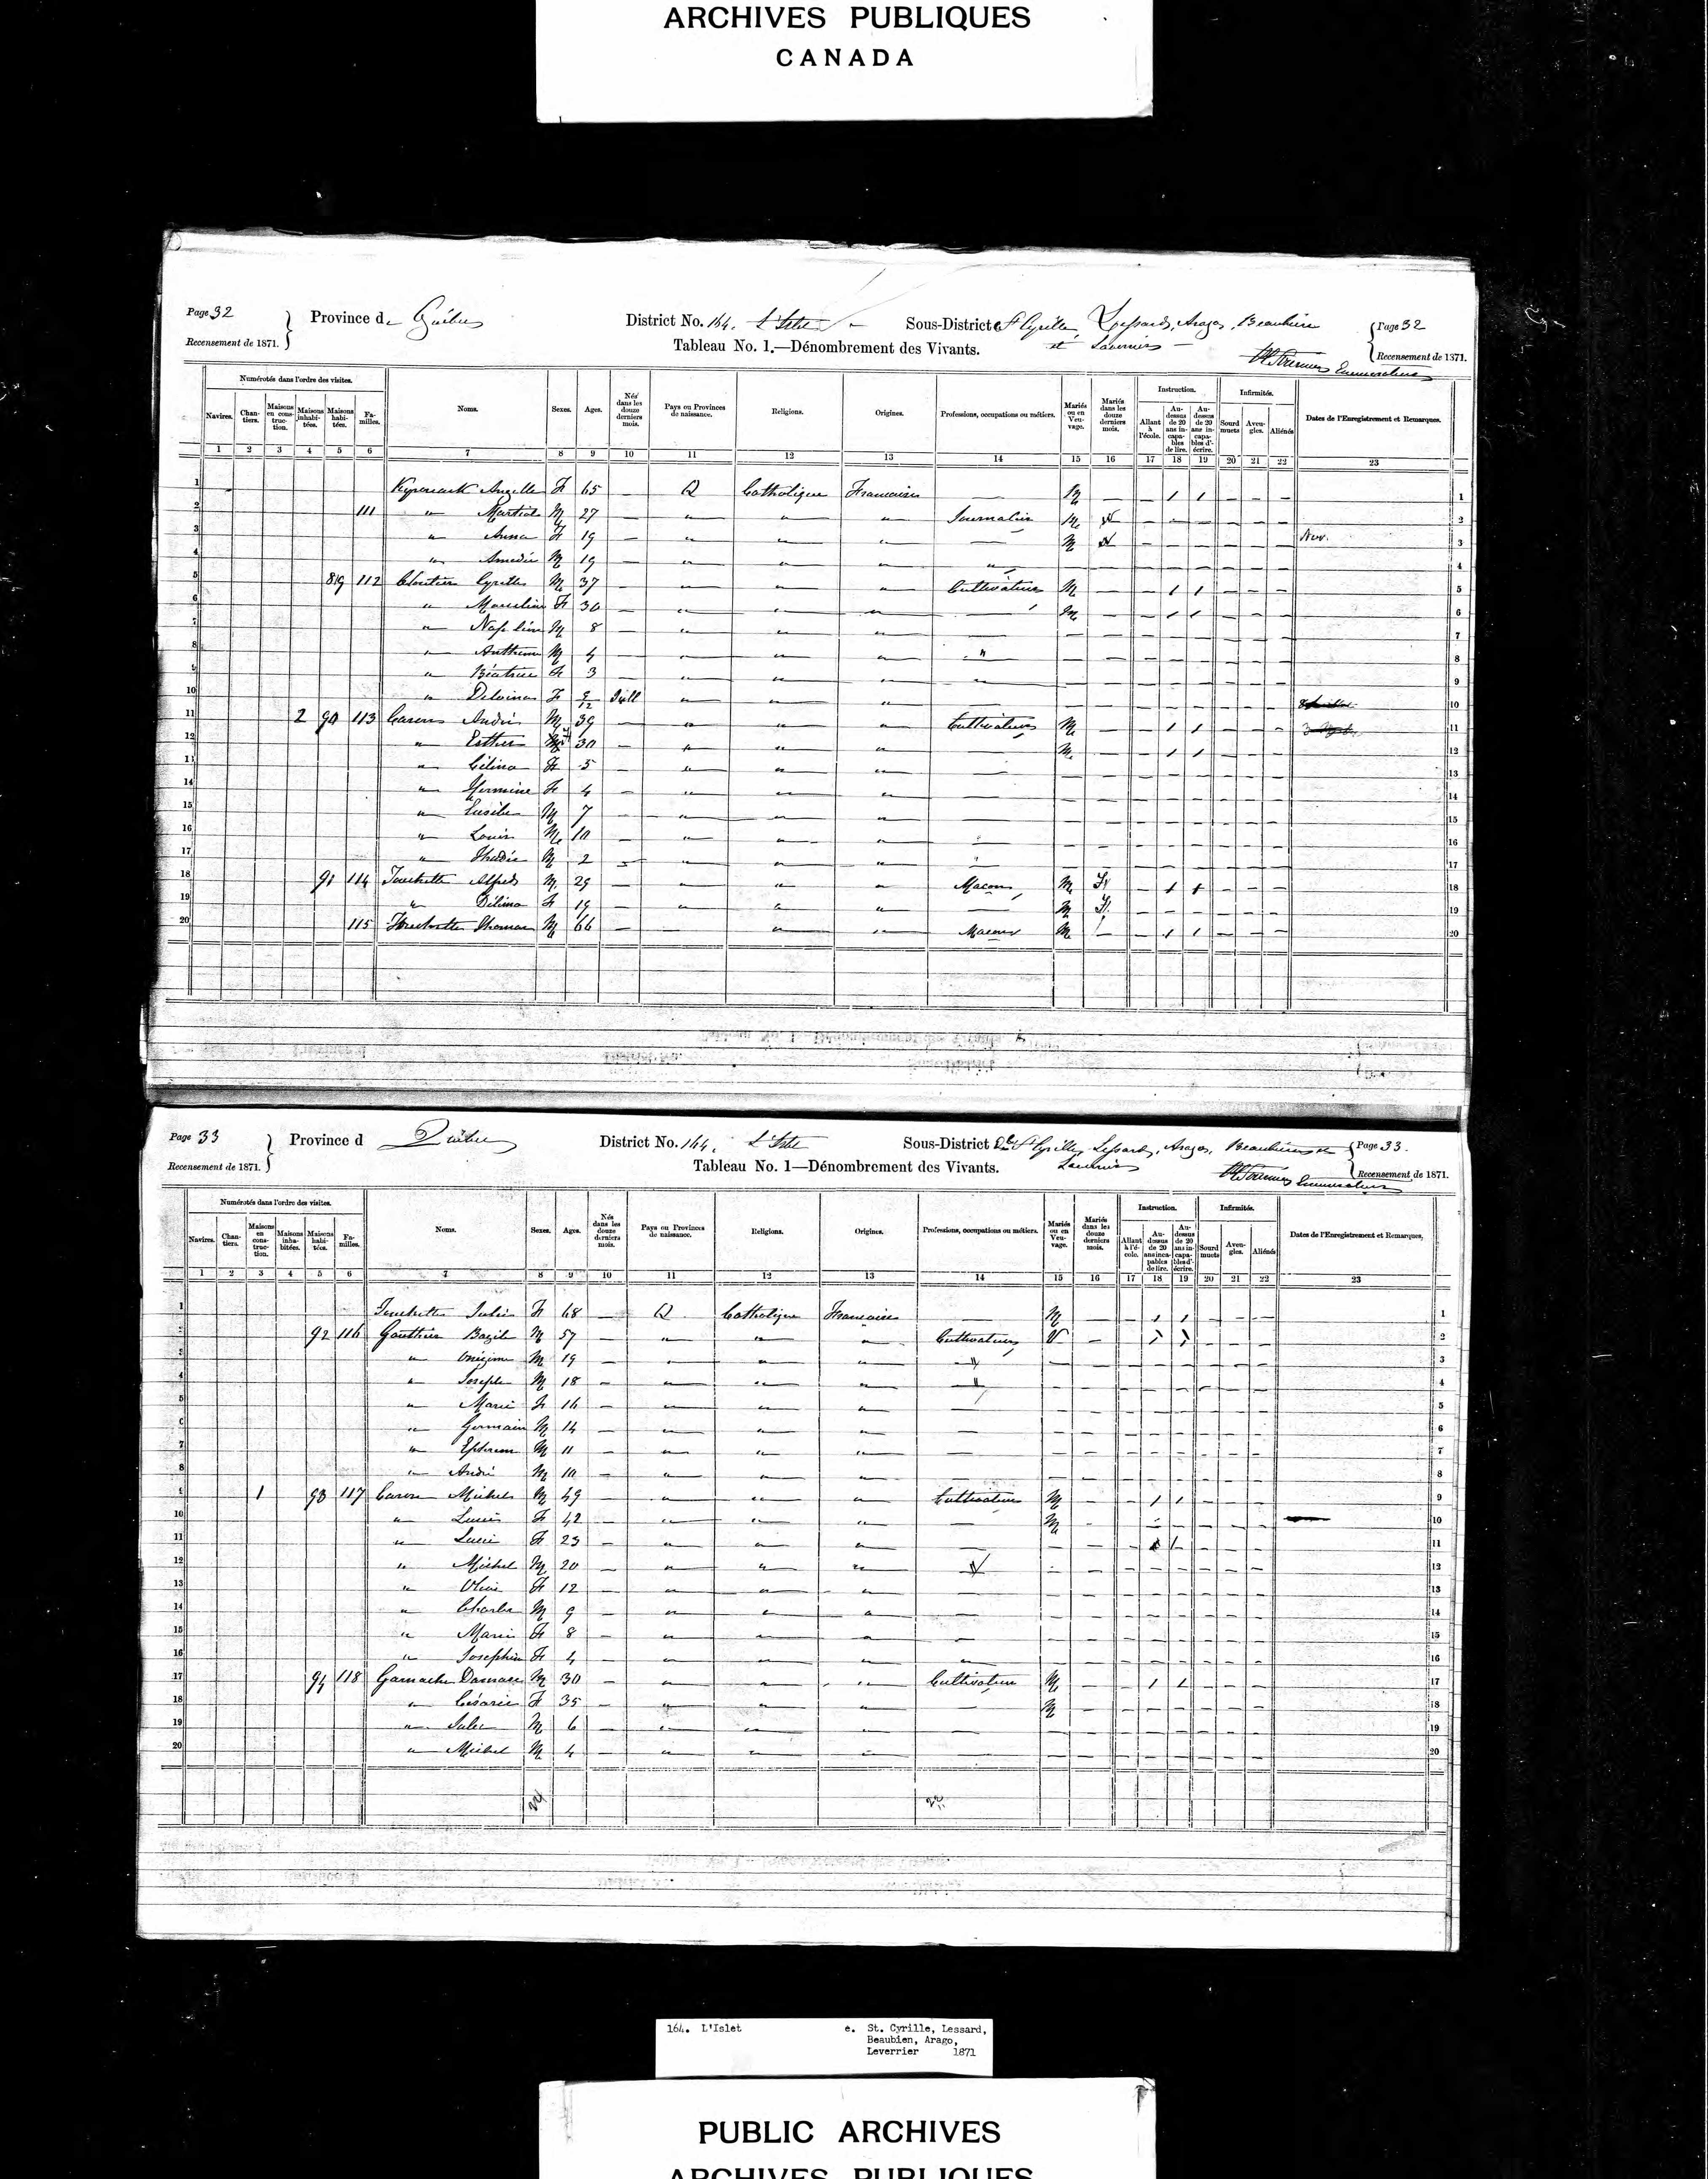 ARCHIVES PUBLIQUES
CANADA
Page 32
Recensement de 1871.
Province de Québec
District No. 164. L'Islet
Sous-District e St Cyrille, Lessard, Arago, Beaubien
et
Page 32
Recensement de 1871.
Tableau No. 1.—Dénombrement des Vivants.
Enumerateur
Numérotés dans l'ordre des visites.
Navires. Chantiers. Maisons en construction. Maisons inhabitées. Maisons habitées. Familles. Noms. Sexes. Ages. Nés dans les douze derniers mois. Pays ou Provinces de naissance. Religions. Origines. Professions, occupations ou métiers. Mariés ou en Veuvage. Mariés dans les douze derniers mois. Instruction. Allant à l'école. Au-dessus de 20 ans incapables de lire. Au-dessus de 20 ans incapables d'écrire. Infirmités. Sourd muets Aveugles. Aliénés Dates de l'Enregistrement et Remarques.
1 2 3 4 5 6 7 8 9 10 11 12 13 14 15 16 17 18 19 20 21 22 23
1 Angelle F 65 — Q Catholique Francaise — M — — 1 1 — — — 1
2 111 " Martial M 27 — " " " Journalier M — — — — — — 2
3 " Anna F 19 — " " " — M — — — — — — Nov. 3
4 " Amedée M 19 — " " " " — — — — — — — — 4
5 89 112 Cloutier Cyrille M 37 — " " " Cultivateur M — — 1 1 — — — 5
6 " Marceline F 30 — " " " M — — 1 1 — — — 6
7 " Napoléon M 8 — " " " — 7
8 " Anthime M 4 — " " " " 8
9 " Béatrice F 3 — " " " — 9
10 " Delvina F Juill " " " 10
11 2 90 113 Caron André M 39 — " " " Cultivateur M — — 1 1 — — — 11
12 " Esther F 30 — " " " — M — — 1 1 — — — 12
13 " Célina F 5 — " " " — 13
14 " Hermine F 4 — " " " — 14
15 " Eusèbe M 7 — " " " — 15
16 " Louis M 10 — " " " 16
17 " Thadée M 2 — " " " 17
18 91 114 Touchette Alfred M 29 — " " " Macon M — 1 1 — — — 18
19 " Délima F 19 — " " " — M — — — — — — 19
20 115 Touchette Thomas M 66 — " " Macon M — — 1 1 — — — 20
Page 33
Recensement de 1871.
Province d Québec
District No. 164. L'Islet
Sous-District St Cyrille, Lessard, Arago, Beaubien et
Page 33.
Recensement de 1871.
Tableau No. 1—Dénombrement des Vivants.
Enumerateur
Numérotés dans l'ordre des visites.
Navires. Chantiers. Maisons en construction. Maisons inhabitées. Maisons habitées. Familles. Noms. Sexes. Ages. Nés dans les douze derniers mois. Pays ou Provinces de naissance. Religions. Origines. Professions, occupations ou métiers. Mariés ou en Veuvage. Mariés dans les douze derniers mois. Instruction. Allant à l'école. Au-dessus de 20 ans incapables de lire. Au-dessus de 20 ans incapables d'écrire. Infirmités. Sourd muets Aveugles. Aliénés Dates de l'Enregistrement et Remarques.
1 2 3 4 5 6 7 8 9 10 11 12 13 14 15 16 17 18 19 20 21 22 23
1 Touchette Julie F 68 — Q Catholique Francaise M 1 1 — — — 1
2 92 116 Gauthier Bazil M 57 — " " " Cultivateur V — 1 1 — — — 2
3 " Onézime M 19 — " " " " 3
4 " Joseph M 18 — " " " " 4
5 " Marie F 16 — " " " 5
6 " Germain M 14 — " " " — 6
7 " Ephrem M 11 — " " " — 7
8 " André M 10 — " " " — 8
9 1 93 117 Caron Michel M 49 — " " " Cultivateur M — — 1 1 — — — 9
10 " Lucie F 42 — " " " — M — — — — — — 10
11 " Lucie F 23 — " " " — — — — 1 1 — — — 11
12 " Michel M 20 — " " " 12
13 " Olive F 12 — " " " — 13
14 " Charles M 9 — " " " — 14
15 " Marie F 8 — " " " — 15
16 " Josephine F 4 — " " " — 16
17 94 118 Gamache Damase M 30 — " " " Cultivateur M — — 1 1 — — — 17
18 " Césarie F 35 — " " " — M — — — — — — 18
19 " Jules M 6 — " " " — 19
20 " Michel M 4 — " " " — 20
164. L'Islet e. St. Cyrille, Lessard,
Beaubien, Arago,
Leverrier 1871
PUBLIC ARCHIVES
ARCHIVES PUBLIQUES